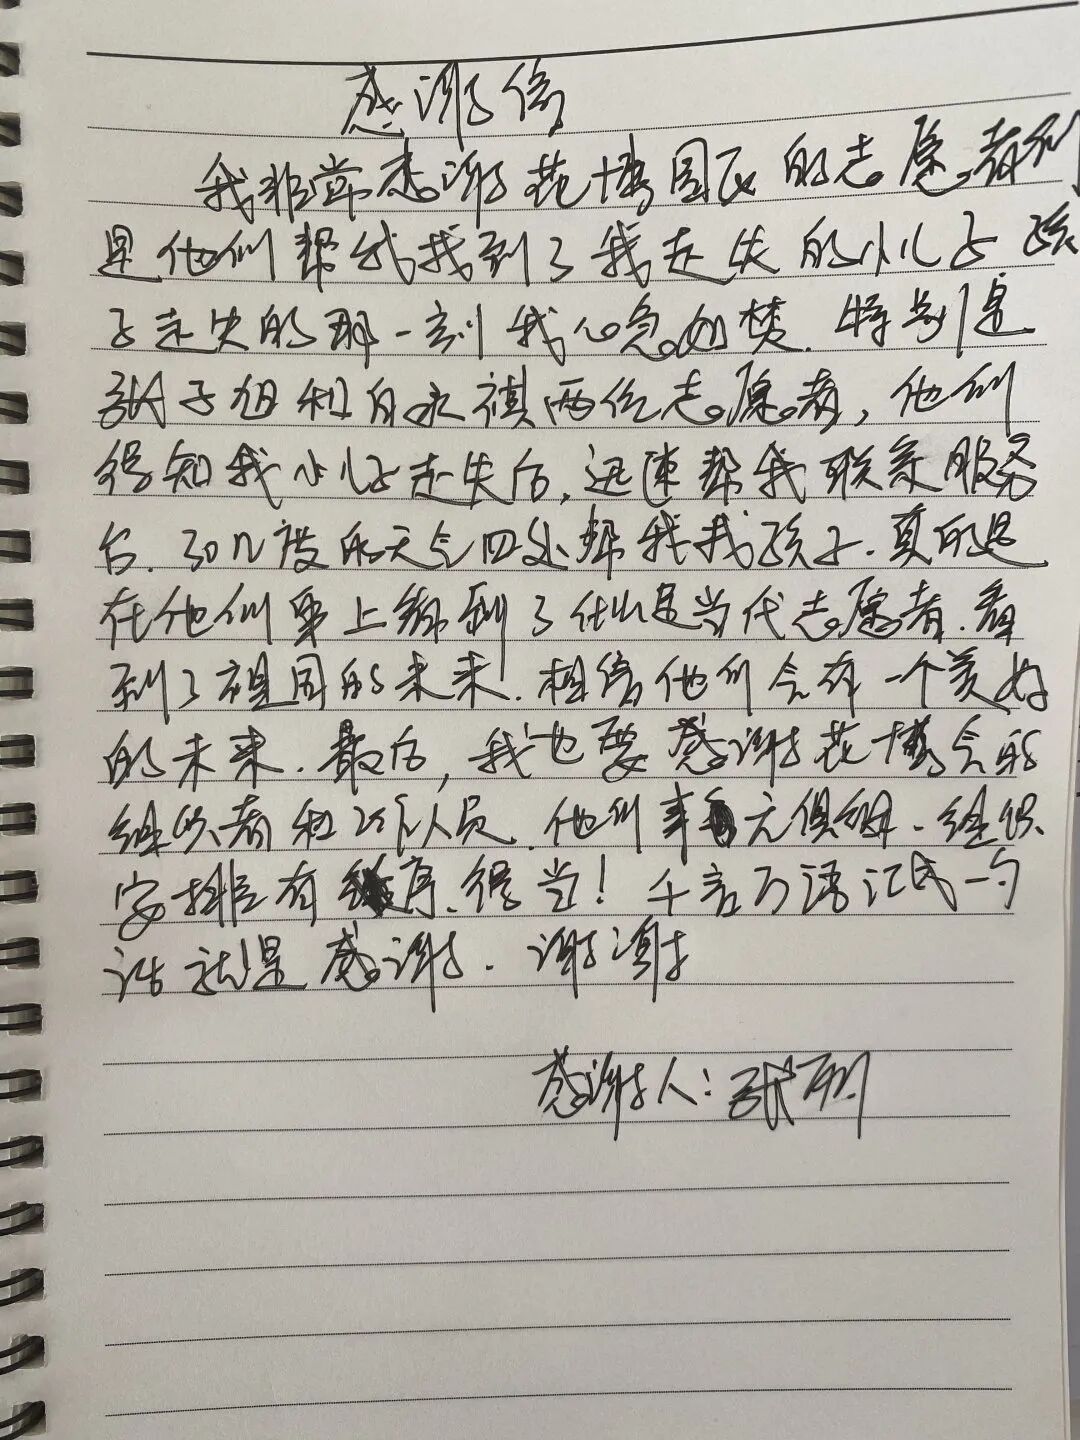 感谢信
我非常感谢花博园区的志愿者们
是他们帮我找到了我走失的小儿子 孩
子走失的那一刻我心急如焚. 特别是
张子旭和白永祺两位志愿者, 他们
得知我小儿子走失后, 迅速帮我联系服务
台. 30几度的天气四处帮我找孩子. 真的是
在他们身上看到了什么是当代志愿者. 看
到了祖国的未来. 相信他们会有一个美好
的未来. 最后, 我也要感谢花博会的
组织者和工作人员. 他们事无俱细. 组织
安排有序. 得当! 千言万语汇成一句
话就是感谢. 谢谢
感谢人: 张